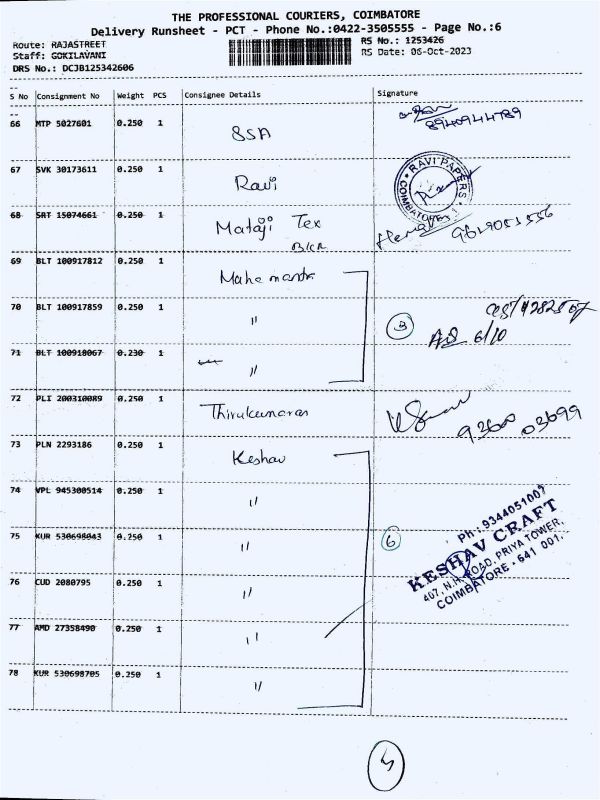 THE PROFESSIONAL COURIERS, COIMBATORE
Delivery Runsheet - PCT - Phone No.:0422-3505555 - Page No.:6
Route: RAJASTREET RS No.: 1253426
Staff: GOKILAVANI RS Date: 06-Oct-2023
DRS No.: DCJB125342606
S No Consignment No Weight PCS Consignee Details Signature
66 MTP 5027601 0.250 1 SSA 8940944789
67 SVK 30173611 0.250 1 Ravi
RAVI PAPERS
COIMBATORE-1
68 SRT 15074661 0.250 1 Mataji Tex
69 BLT 100917812 0.250 1 Mahe mantra
70 BLT 100917859 0.250 1 〃 3
6/10
71 BLT 100918067 0.230 1 〃
72 PLI 200310089 0.250 1 Thirukumaran 93600 03699
73 PLN 2293186 0.250 1 Keshav
74 VPL 945300514 0.250 1 〃
75 KUR 530698043 0.250 1 〃 6
Ph : 9344051007
KESHAV CRAFT
407, N.H. ROAD, PRIYA TOWER,
COIMBATORE - 641 001.
76 CUD 2080795 0.250 1 〃
77 AMD 27358490 0.250 1 〃
78 KUR 530698705 0.250 1 〃